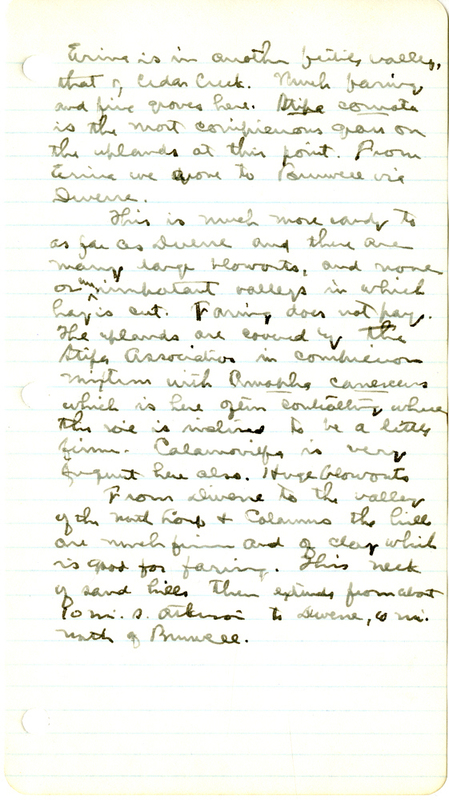 Ericina is in another fertile valley,
that of Cedar Creek. Much farming
and fine groves here. Stipa comata
is the most conspicuous grass on
the uplands at this point. From
Ericina we drove to Burwell via
Deverre.
This is much more sandy to
as far as Deverre and there are
many large blowouts, and more
or unimportant valleys in which
hay is cut. Farming does not pay.
The uplands are covered by the
Stipa Association in conspicuous
mixture with Amorpha canescens
which is here often controlling where
the soil is inclined to be a little
firm. Calamovilfa is very
frequent here also. Huge blowouts
From Deverre to the valley
of the North Loup & Calamus the hills
are much firmer and of clay which
is good for farming. This neck
of sand hills then extends from about
10 mi. s. Atkinson to Deverre, mi.
north of Burwell.